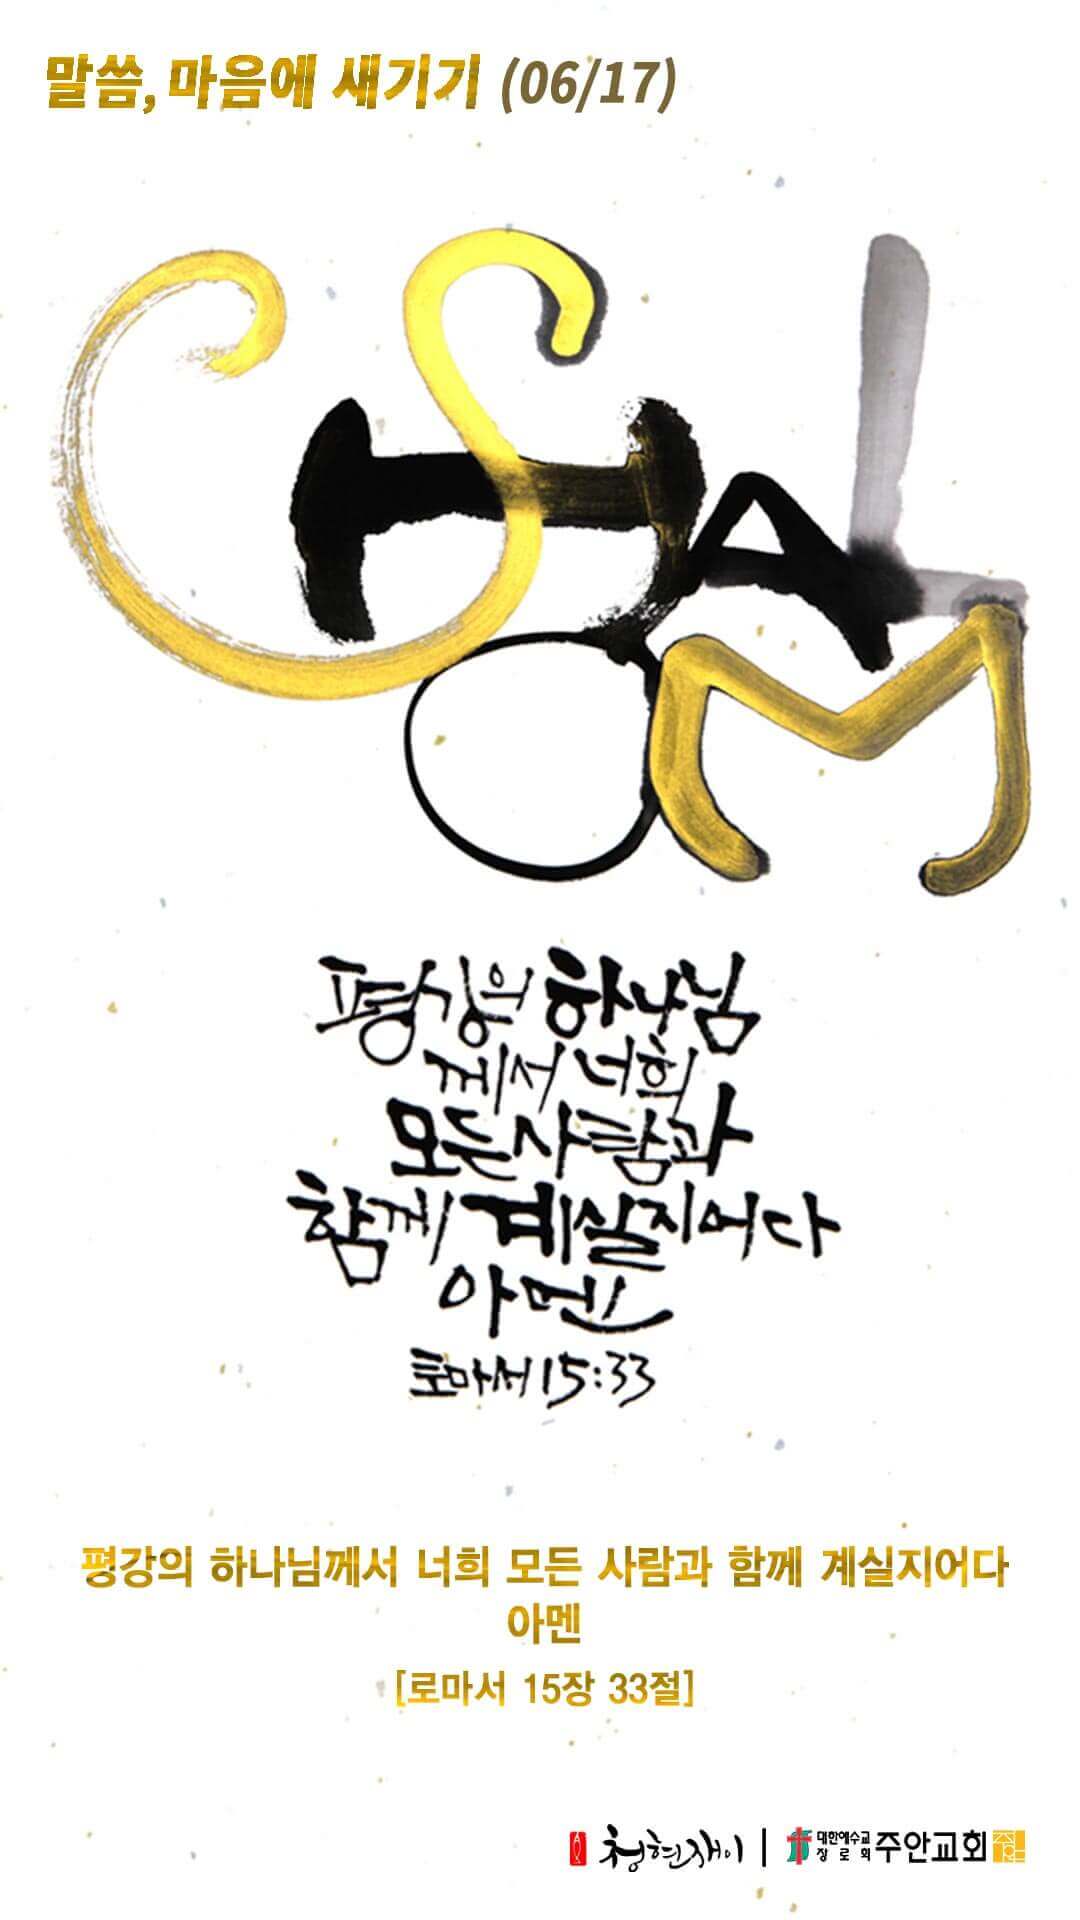 말씀, 마음에 새기기 (06/17)
SHALOM
평강의 하나님
께서 너희
모든 사람과
함께 계실지어다
아멘
로마서 15:33
평강의 하나님께서 너희 모든 사람과 함께 계실지어다
아멘
[로마서 15장 33절]
청현재이 | 대한예수교장로회 주안교회